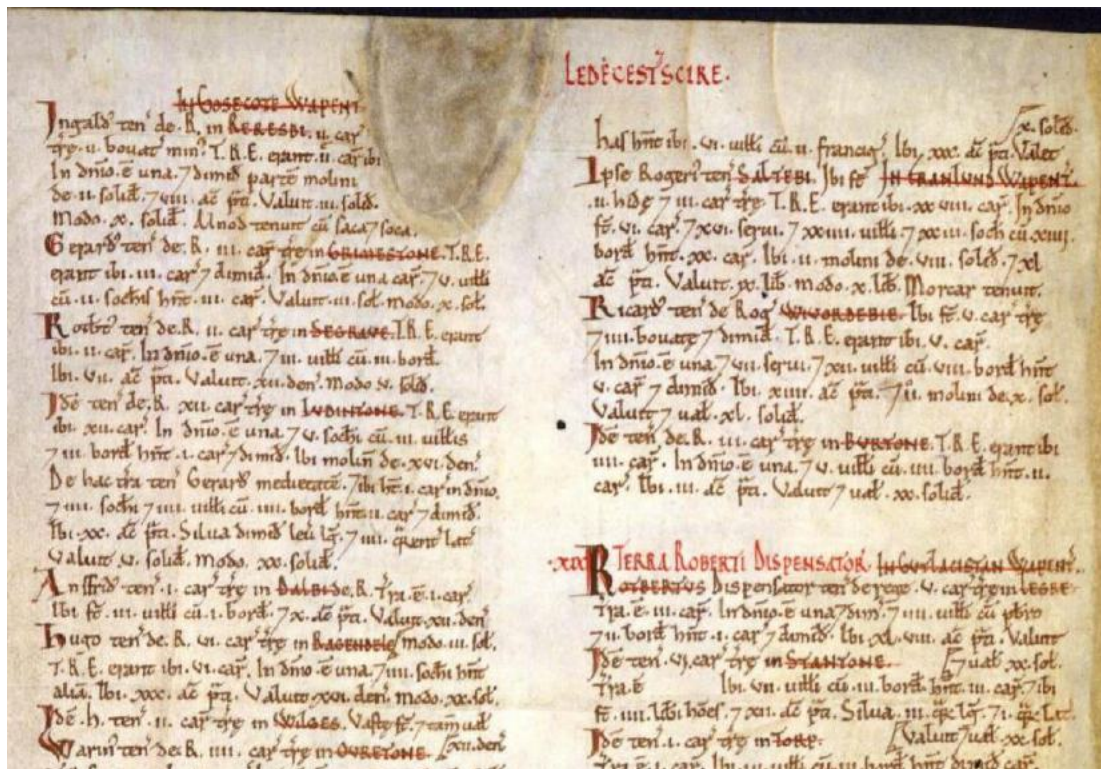 LEDECESTSCIRE.
In GOSECOTE WAPENT.
Ingald' ten' de .R. in RERESBI. ii. car'
t're. ii. bovat' min'. T.R.E. erant .ii. car' ibi
In dn̄io ē una. 7 dimid parte molini
de .ii. solid. 7 viii. ac̄ p̄ti. Valuit .iii. solid.
Modo .x. solid. Alnod tenuit cū saca 7 soca.
Gerard' ten' de .R. iii. car' t're in GRIMESTONE. T.R.E.
erant ibi .iii. car' 7 dimid. In dn̄io ē una car' 7 v. uilli
cū .ii. sochis hn̄t .iii. car'. Valuit .iii. sol. modo .x. sol.
Rotbt' ten' de .R. ii. car' t're in SEGRAVE. T.R.E. erant
ibi .ii. car'. In dn̄io ē una. 7 iii. uilli cū .iii. bord.
Ibi .vii. ac̄ p̄ti. Valuit .xii. den'. Modo .x. solid.
Idē ten' de .R. xii. car' t're in LUDINTONE. T.R.E. erant
ibi .xii. car'. In dn̄io ē una. 7 v. sochi cū .iii. uillis
7 iii. bord hn̄t .i. car' 7 dimid. Ibi molin' de .xvi. den'.
De hac t'ra ten' Gerard' medietatē. 7 ibi ht̄ .i. car' in dn̄io.
7 iiii. sochi 7 iiii. uilli cū .iiii. bord hn̄t .ii. car' 7 dimid.
Ibi .xx. ac̄ p̄ti. Silua dimid leu' lḡ. 7 iiii. q̄rent' lat'
Valuit .v. solid. modo .xx. solid.
Ansfrid' ten' .i. car' t're in DALBI de .R. T'ra .ē .i. car'
Ibi st̄ .iii. uilli cū .i. bord. 7 x. ac̄ p̄ti. Valuit .xii. den'
Hugo ten' de .R. vi. car' t're in BAGENDELE modo .iii. sol.
T.R.E. erant ibi .vi. car'. In dn̄io ē una. 7 iiii. sochi hn̄t
aliā. Ibi .xxx. ac̄ p̄ti. Valuit .xvi. den'. modo .xx. sol.
Idē .H. ten' .ii. car' t're in WILGES. Vastę st̄. 7 tam̄ ual'
Warin' ten' de .R. iiii. car' t're in OVRETONE. [xii. den'
[x. solid.
has hn̄t ibi .vi. uilli cū .ii. francig'. Ibi .xxx. ac̄ p̄ti. Valet
Ipse Rogeri' ten' SALTEBI. Ibi st̄ In GRANLUND WAPENT.
.ii. hidę 7 iii. car' t're. T.R.E. erant ibi .xxviii. car'. In dn̄io
st̄ .vi. car'. 7 xvi. serui. 7 xxiiii. uilli. 7 xxiii. soch' cū .xiiii.
bord hn̄t .xx. car'. Ibi .ii. molini de .viii. solid. 7 xl
ac̄ p̄ti. Valuit .ix. lib. modo .x. lib. Morcar tenuit.
Ricard' ten' de Rog' WIVORDEBIE. Ibi st̄ .v. car' t're
7 iiii. bovatę 7 dimid. T.R.E. erant ibi .v. car'.
In dn̄io ē una. 7 vii. serui. 7 xii. uilli cū .viii. bord hn̄t
v. car' 7 dimid. Ibi .xiiii. ac̄ p̄ti. 7 ii. molini de .x. sol.
Valuit 7 ual' .xl. solid.
Idē ten' de .R. iii. car' t're in BURTONE. T.R.E. erant ibi
iiii. car'. In dn̄io ē una. 7 v. uilli cū .iiii. bord hn̄t .ii.
car'. Ibi .iii. ac̄ p̄ti. Valuit 7 ual' .xx. solid.
.xix. TERRA ROBERTI DISPENSATOR'. In GUTLACISTAN WAPENT.
ROTBERTUS Dispensator ten' de rege .v. car' t're in LEGRE
T'ra .ē .iii. car'. In dn̄io ē una 7 dim'. 7 iiii. uilli cū p̄br̄o
7 ii. bord hn̄t .i. car' 7 dimid. Ibi .xl. viii. ac̄ p̄ti. Valuit
Idē ten' .vi. car' t're in STANTONE. [7 ual' .xx. sol.
T'ra .ē Ibi .vii. uilli cū .iii. bord hn̄t .iii. car'. 7 ibi
st̄ .iiii. lib̄i hōes. 7 xii. ac̄ p̄ti. Silua .iii. q̄r̄ lḡ. 7 i. q̄r̄ lat.
Idē ten' .i. car' t're in TORP. [Valuit 7 ual' .xx. sol.
T'ra .ē .i. car'. Ibi .iii. uilli cū .iii. bord hn̄t dimid car'.